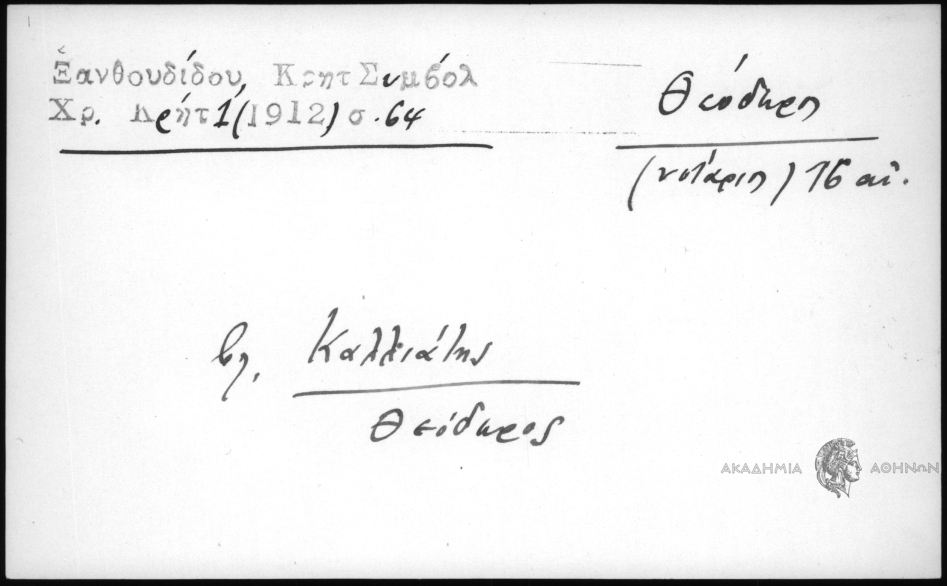 Ξανθουδίδου, Κρητ Συμβολ
Χρ. Κρήτ 1 (1912) σ. 64
Θεόδωρος
(νοτάριος) 16 αἰ.
βλ. Καλλιάτης
Θεόδωρος
ΑΚΑΔΗΜΙΑ ΑΘΗΝΩΝ